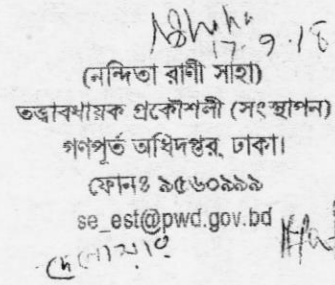 17.9.18
(নন্দিতা রাণী সাহা)
তত্ত্বাবধায়ক প্রকৌশলী (সংস্থাপন)
গণপূর্ত অধিদপ্তর, ঢাকা।
ফোনঃ ৯৫৬০৯৯৯
se_est@pwd.gov.bd